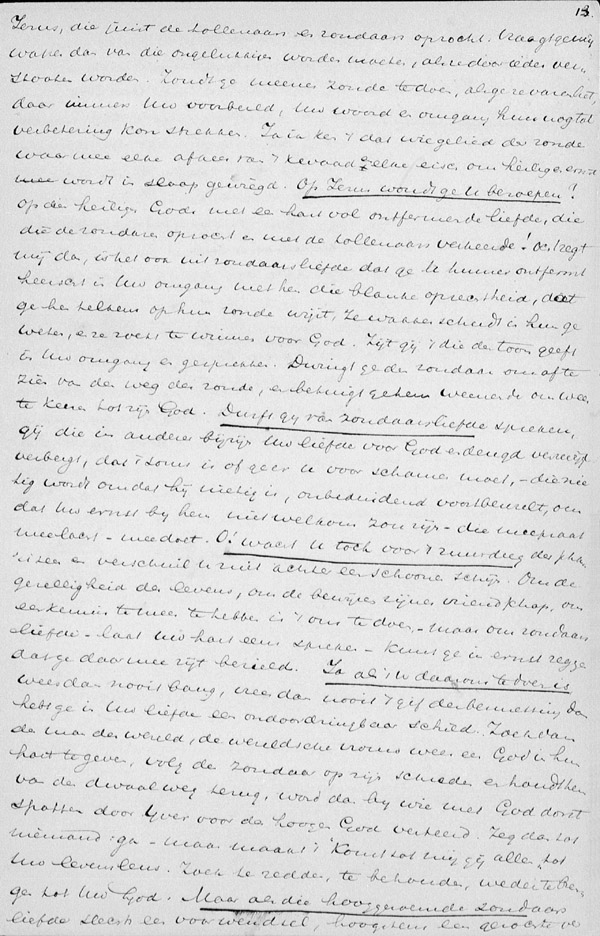 13.
Jezus, die juist de tollenaars en zondaars opzocht. Vraagt gerust
wat er dan van die ongelukkigen worden moet, als ze door ieder ver-
stooten worden. Zoudt ge meenen zonde te doen, als ge ze varen liet,
daar immers Uw voorbeeld, Uw woord en omgang hun nog tot
verbetering kon strekken. Ja ik ken 't dat wiegelied der zonde
waar mee elke
wordt in slaap gewiegd. Op Jezus woudt ge U beroepen!
op den heilige Gods met een hart vol ontfermende liefde, die
de zondaren opzocht en met de tollenaars verkeerde! O zegt
mij dan, is het ook uit zondaarsliefde dat ge U hunner ontfermt
heerscht in Uw omgang met hen die blanke oprechtheid, dat
ge hen telkens op hun zonde wijst, ze wakker schudt in hun ge-
weten, en ze zoekt te winnen voor God. Zijt gij 't die den toon geeft
in Uw omgang en gesprekken. Dringt ge den zondaar om af te
zien van den weg der zonde, en betuigt ge hem weenende om weer
te keeren tot zijn God. Durft gij van zondaarsliefde spreken,
gij die in anderer bijzijn Uw liefde voor God en deugd
verbergt, dat 't soms is of ge er U voor schamen moet, - die nie-
tig wordt omdat hij nietig is, onbeduidend voortbeuzelt, om-
dat Uw ernst bij hem niet welkom zou zijn - die meepraat
meelacht - meedoet. O! wacht U toch voor 't zuurdeeg der phari-
zeen en verschuil U niet achter een schoonen schijn. Om de
gezelligheid des levens, om de bewijzen zijner vriendschap, om
een kennis te meer te hebben is 't om te doen, - maar om zondaars
liefde - laat Uw hart eens spreken - kunt ge in ernst zeggen
dat ge daarmee zijt bezield. Ja als 't U daarom te doen is
wees dan nooit bang, vrees dan nooit 't gif der besmetting dan
hebt ge in Uw liefde een ondoordringbaar schild. Zoek dan
den man der wereld, de wereldsche vrouw weer een God in hun
hart te geven, volg den zondaar op zijn schreden en houdt hem
van den dwaalweg terug, word dan bij wie met God dorst
spotten door ijver voor den hoogen God verteerd. Zeg dan tot
niemand: ga - maar: "Komt tot mij gij allen, tot
Uw levenslens. Zoek te redden, te behouden, weder te bren-
gen tot Uw God. Maar als die hooggeroemde zondaars
liefde slechts een voorwendsel, hoogstens een